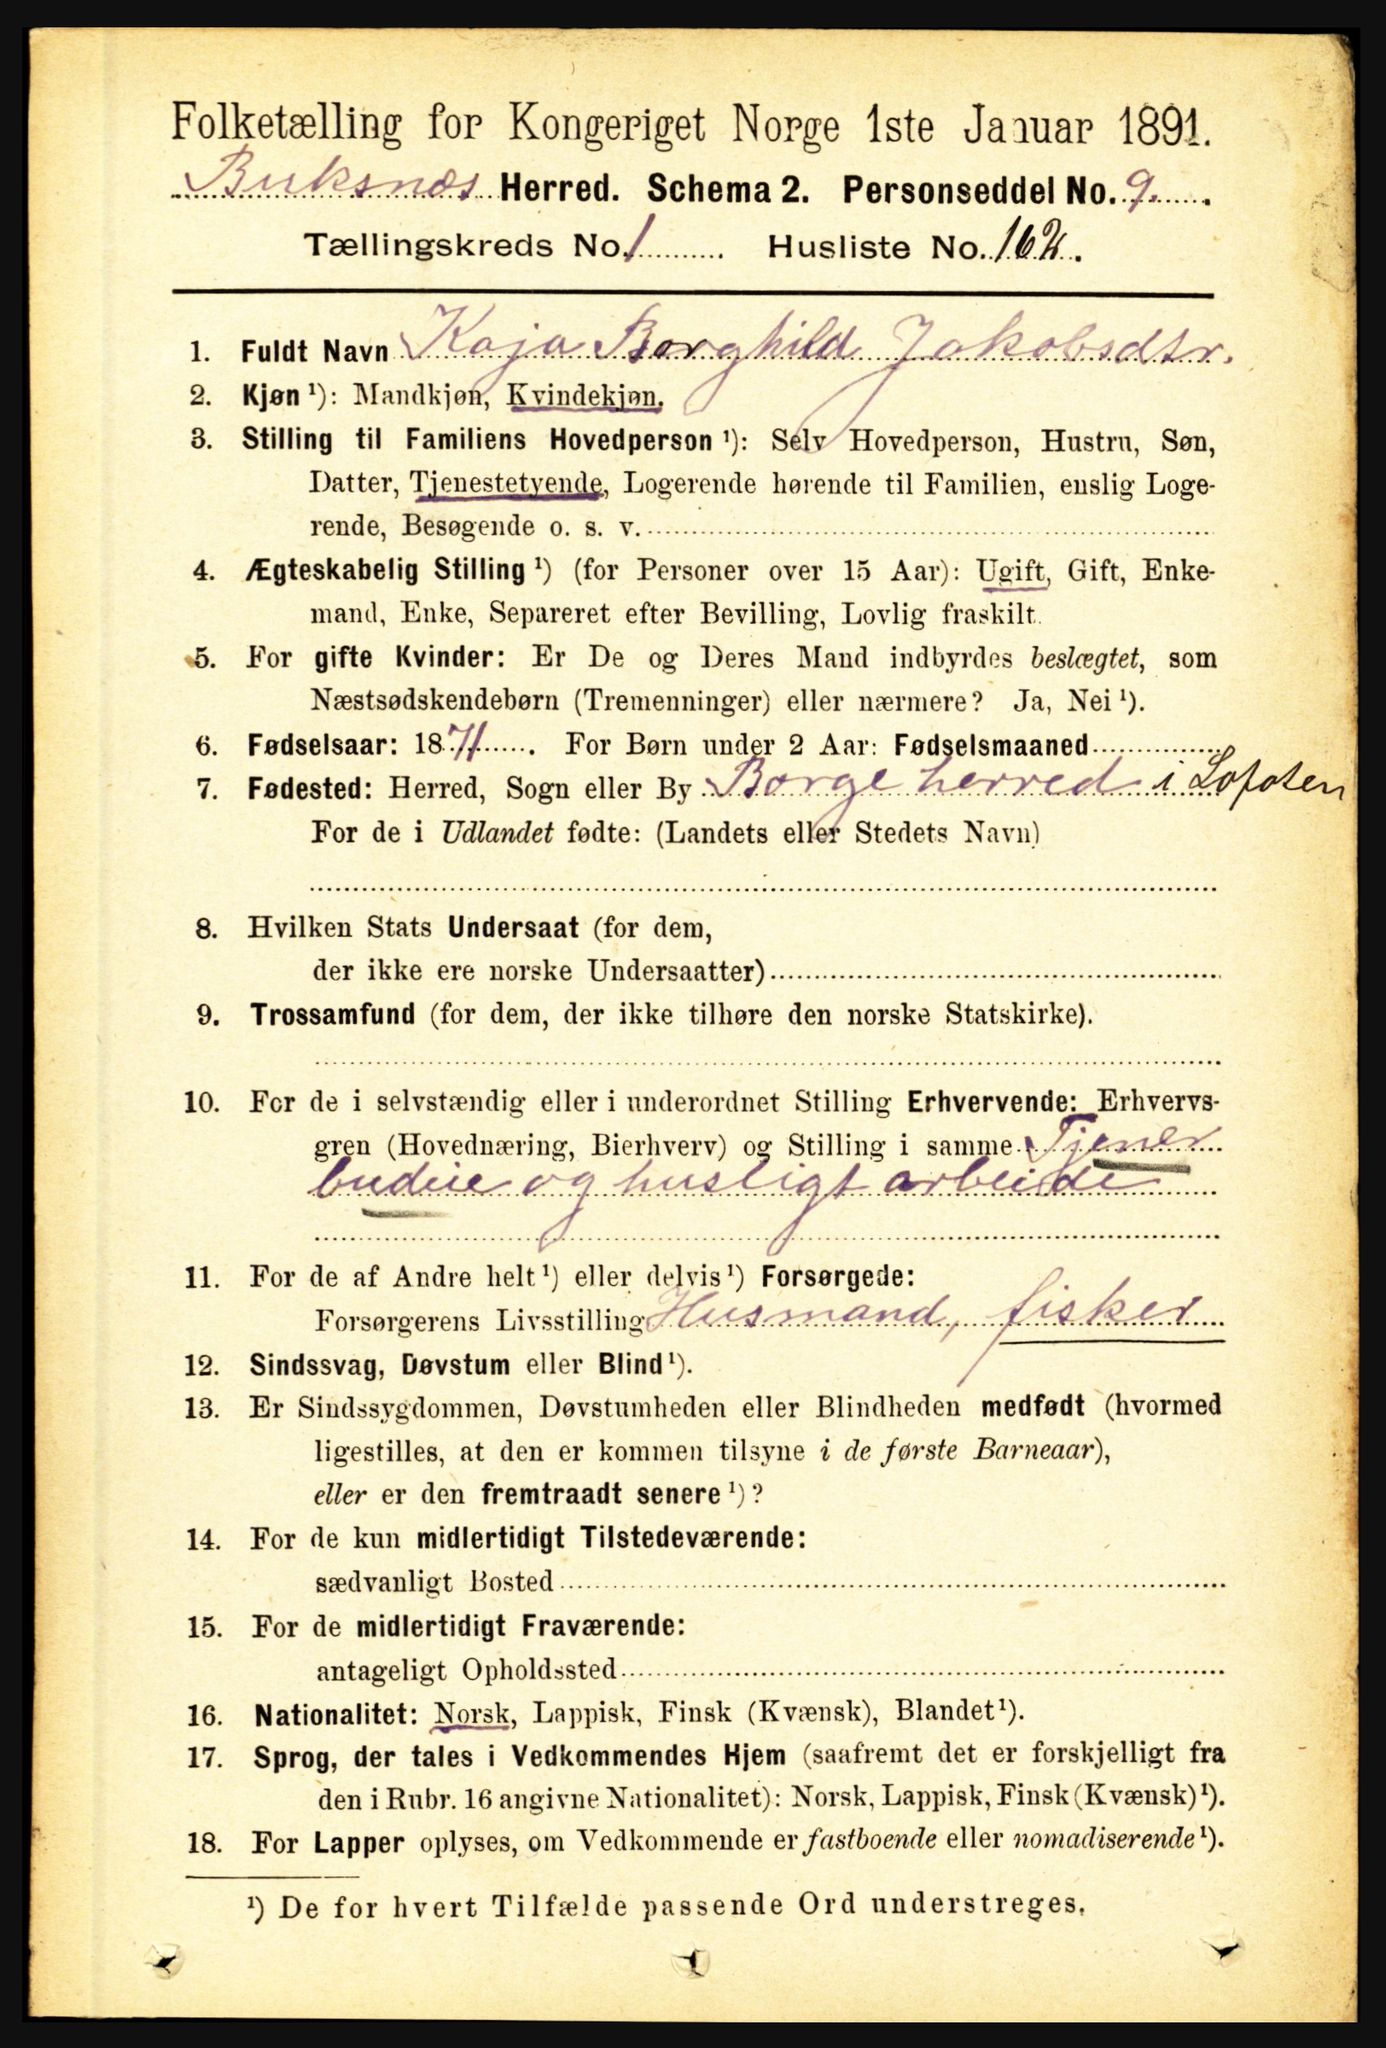 Folketælling for Kongeriget Norge 1ste Januar 1891.
Buksnæs Herred. Schema 2. Personseddel No. 9.
Tællingskreds No. 1 Husliste No. 162.
1. Fuldt Navn Kaja Borghild Jakobsdtr.
2. Kjøn ¹): Mandkjøn, Kvindekjøn.
3. Stilling til Familiens Hovedperson ¹): Selv Hovedperson, Hustru, Søn,
Datter, Tjenestetyende, Logerende hørende til Familien, enslig Loge-
rende, Besøgende o. s. v.
4. Ægteskabelig Stilling ¹) (for Personer over 15 Aar): Ugift, Gift, Enke-
mand, Enke, Separeret efter Bevilling, Lovlig fraskilt.
5. For gifte Kvinder: Er De og Deres Mand indbyrdes beslægtet, som
Næstsødskendebørn (Tremenninger) eller nærmere? Ja, Nei ¹).
6. Fødselsaar: 1871. For Børn under 2 Aar: Fødselsmaaned
7. Fødested: Herred, Sogn eller By Borge herred i Lofoten
For de i Udlandet fødte: (Landets eller Stedets Navn)
8. Hvilken Stats Undersaat (for dem,
der ikke ere norske Undersaatter)
9. Trossamfund (for dem, der ikke tilhøre den norske Statskirke).
10. For de i selvstændig eller i underordnet Stilling Erhvervende: Erhvervs-
gren (Hovednæring, Bierhverv) og Stilling i samme Tjener
budeie og husligt arbeide
11. For de af Andre helt ¹) eller delvis ¹) Forsørgede:
Forsørgerens Livsstilling Husmand, fisker
12. Sindssvag, Døvstum eller Blind ¹).
13. Er Sindssygdommen, Døvstumheden eller Blindheden medfødt (hvormed
ligestilles, at den er kommen tilsyne i de første Barneaar),
eller er den fremtraadt senere ¹)?
14. For de kun midlertidigt Tilstedeværende:
sædvanligt Bosted
15. For de midlertidigt Fraværende:
antageligt Opholdssted
16. Nationalitet: Norsk, Lappisk, Finsk (Kvænsk), Blandet ¹).
17. Sprog, der tales i Vedkommendes Hjem (saafremt det er forskjelligt fra
den i Rubr. 16 angivne Nationalitet): Norsk, Lappisk, Finsk (Kvænsk) ¹).
18. For Lapper oplyses, om Vedkommende er fastboende eller nomadiserende ¹).
¹) De for hvert Tilfælde passende Ord understreges.